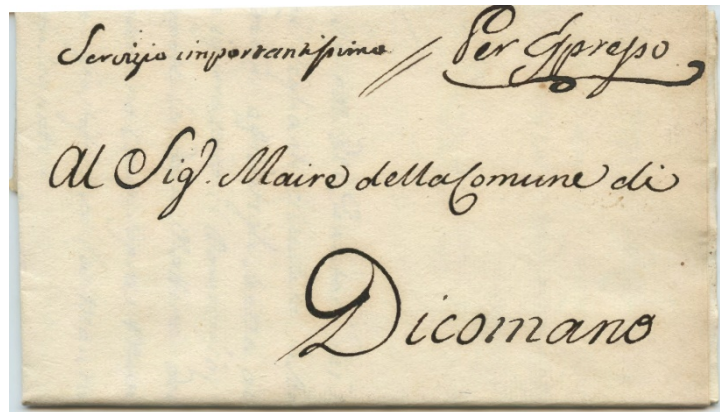 Servizio importantissimo // Per Espresso
Al Sig.r Maire della Comune di
Dicomano